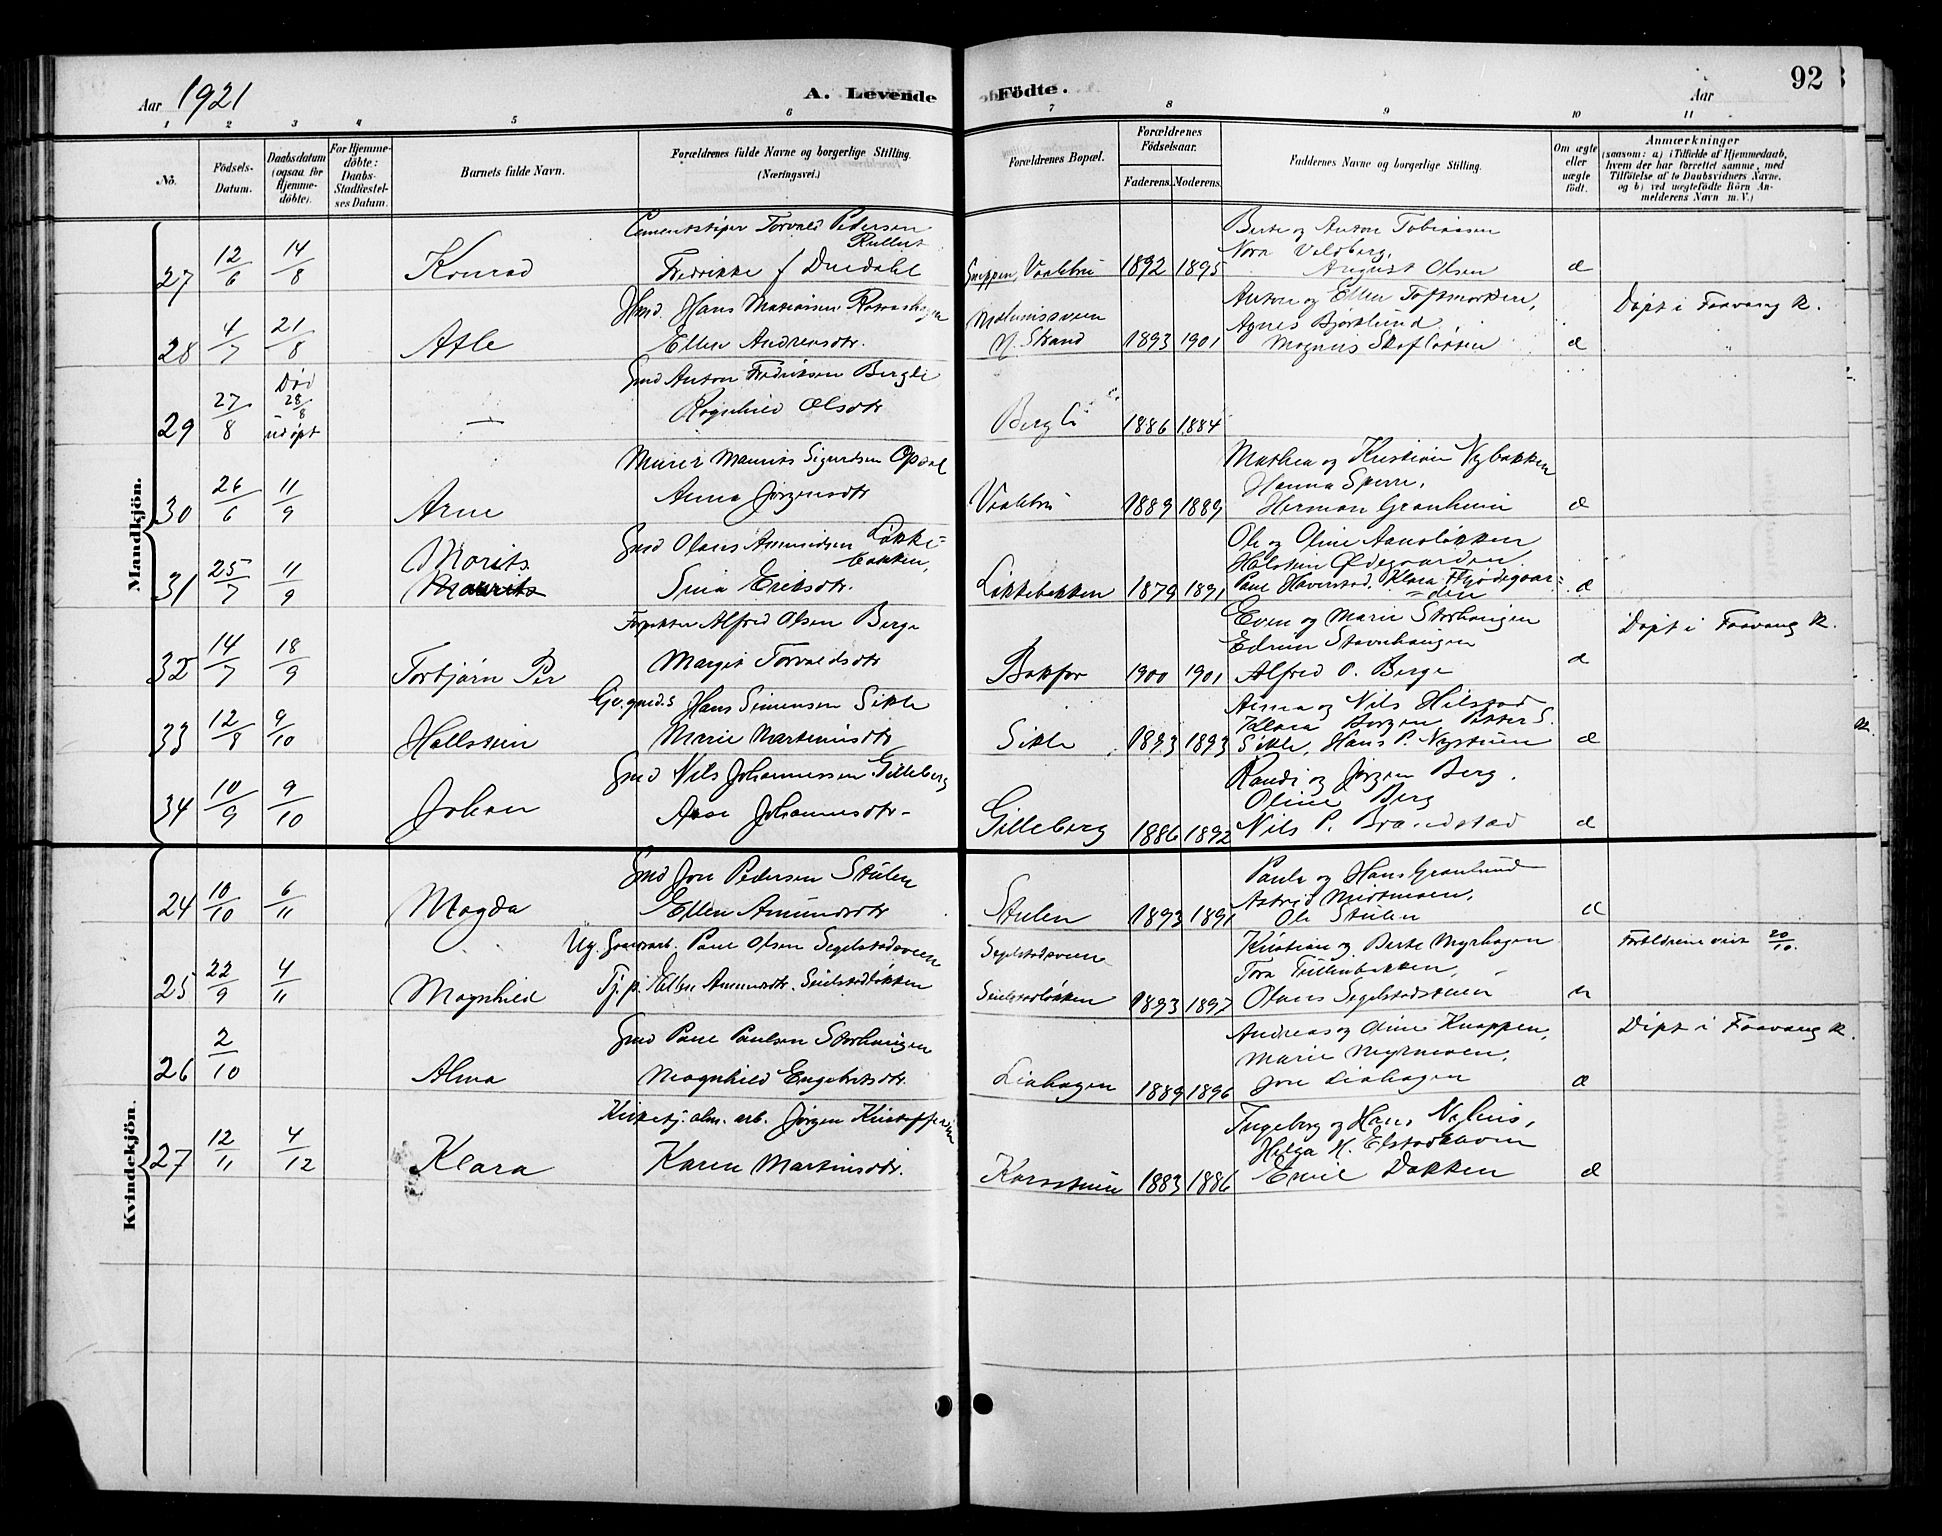 Aar 1921
A. Levende Fødte.
Aar
92
1 2 3 4 5 6 7 8 9 10 11
No.
Födsels-Datum.
Daabsdatum (ogsaa for Hjemmedöbte).
For Hjemmedöbte: Daabs-Stadfæstelses Datum.
Barnets fulde Navn.
Forældrenes fulde Navne og borgerlige Stilling. (Næringsvei.)
Forældrenes Bopæl.
Forældrenes Födselsaar.
Faderens. Moderens.
Faddernes Navne og borgerlige Stilling.
Om ægte eller uægte født.
Anmærkninger
(saasom: a) i Tilfælde af Hjemmedaab, hvem der har forrettet samme, med Tilføielse af to Daabsvidners Navne, og b) ved uægtefødte Börn Anmelderens Navn m.V.)
Mandkjön.
Cementstøper Torvald Pedersen
Berte og Anton Tobiassen
Nora Voldberg,
27 12/6 14/8 Konrad Fredrikke f Duedahl Vaalebru 1892 1895 August Olsen
Hans Mariussen
Anton og Ellen Toftmarken,
Agnes Bjørklund,
28 4/7 21/8 Atle Ellen Andreasdtr. Strand 1893 1901 Magnus
Døpt i Faavang K.
Gmd Anton Fredriksen Bergli
29 27/8 Død 28/8 udøpt — Ragnhild Olsdtr Bergli 1886 1884
Murer Maurits Sigurdsen Opdal
Mathea og Kristian Nybakken
Hanna Sperre,
30 26/6 11/9 Arne Anna Jørgensdtr Vaalebru 1889 1889 Herman Granheim
Gmd Olaus Amundsen Løkkebakken,
Ole og Oline Aanesløkken
Halsten Ødegaarden
31 25/7 11/9 Morits Maurits Sina Eriksdtr. Løkkebakken 1879 1891 Paul Haverstad. Klara Flødegaarden
Forpakter Alfred Olsen Berge
Even og Marie Storhaugen
Edrun Stavnhaugen
32 14/7 18/9 Torbjørn Per Margit Torvaldsdtr Bakfor 1900 1901 Alfred O. Berge
Døpt i Faavang K.
Hans Simensen Sikle
Anna og Nils Hilstad
Klara Borgen, Petter S.
33 12/8 9/10 Hallstein Marie Martinusdtr Sikle 1893 1893 Sikle, Hans P. Nystuen
Gmd Nils Johannessen Gilleberg
Randi og Jørgen Berg.
Oline Berg
34 10/9 9/10 Johan Aase Johannesdtr. Gilleberg 1886 1892 Nils P. Brandstad
Kvindekjön.
Gmd Jon Pedersen Stulen
Paula og Hans Granlund
24 10/10 6/11 Magda Ellen Amundsdtr Stulen 1893 1891 Ole Stulen
Ug. Gaardarb. Paul Olsen Segelstadsveen
Segelstadsveen
Kristian og Berte Myrhagen
Tora Tullenbakken,
25 22/9 4/11 Magnhild Tj. p. Ellen Amundsdtr. Seielstadløkken Seielstadløkken 1893 1897 Olaus Segelstadstuen
Forældrene viet 20/10.
Gmd Paul Paulsen Storhaugen
Andreas og Oline Knappen,
Marie Myrmoen,
26 2/10 Alma Magnhild Engebretsdtr. Liahagen 1889 1896 Jon Liahagen
Døpt i Faavang K.
Jørgen Kristoffersen
Ingeborg og Hans Nyhus,
Helga M.
27 12/11 4/12 Klara Karen Martinusdtr. Korsstuen 1883 1886 Emil Dakken